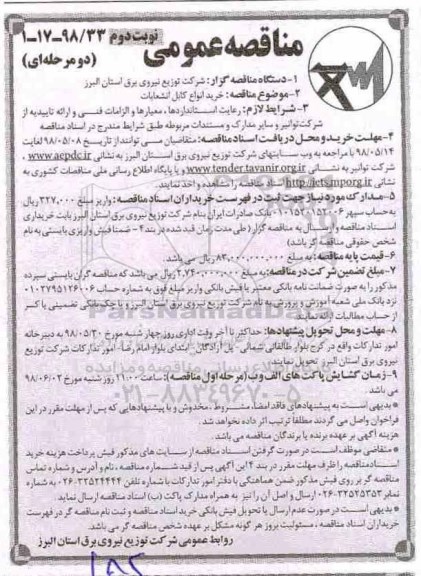 مناقصه عمومی
نوبت دوم ۹۸/۳۳-۱۷-۱
(دو مرحله‌ای)
۱-دستگاه مناقصه گزار: شرکت توزیع نیروی برق استان البرز
۲-موضوع مناقصه: خرید انواع کابل انشعابات
۳- شرایط لازم: رعایت استانداردها، معیارها و الزامات فنی و ارائه تاییدیه از
شرکت توانیر و سایر مدارک و مستندات مربوطه طبق شرایط مندرج در اسناد مناقصه
۴-مهلت خرید و محل دریافت اسناد مناقصه: متقاضیان می توانند از تاریخ ۹۸/۰۵/۰۸ لغایت
۹۸/۰۵/۱۴ با مراجعه به وب سایتهای شرکت توزیع نیروی برق استان البرز به نشانی www.aepdc.ir ،
شرکت توانیر به نشانی www.tender.tavanir.org.ir و یا پایگاه اطلاع رسانی ملی مناقصات کشوری به
نشانی http://iets.mporg.ir اسناد مناقصه را مشاهده و اخذ نمایند.
۵-مدارک مورد نیاز جهت ثبت در فهرست خریداران اسناد مناقصه: واریز مبلغ ۳۲۷,۰۰۰ ریال
به حساب سپهر ۰۱۰۱۵۲۰۱۵۲۰۰۶ بانک صادرات ایران بنام شرکت توزیع نیروی برق استان البرز بابت خریداری
اسناد مناقصه و ارسال به مناقصه گزار (طی مدت زمان قید شده در بند ۴ - ضمنا فیش واریزی بایستی به نام
شخص حقوقی مناقصه گر باشد)
۶-قیمت پایه مناقصه: به مبلغ ۸۳,۰۰۰,۰۰۰,۰۰۰ ریال می باشد.
۷-مبلغ تضمین شرکت در مناقصه: به مبلغ ۲,۷۴۰,۰۰۰,۰۰۰ ریال می باشد که مناقصه گران بایستی سپرده
مذکور را به صورت ضمانت نامه بانکی معتبر یا فیش بانکی واریز مبلغ فوق به شماره حساب ۰۱۰۲۷۹۵۱۲۶۰۰۶
نزد بانک ملی شعبه آموزش و پرورش به نام شرکت توزیع نیروی برق استان البرز و یا چک بانکی تضمینی یا کسر
از حساب مطالبات ارائه نمایند.
۸- مهلت و محل تحویل پیشنهادها: حداکثر تا آخر وقت اداری روز چهار شنبه مورخ ۹۸/۰۵/۳۰ به دبیرخانه
امور تدارکات واقع در کرج بلوار طالقانی شمالی - پل آزادگان - ابتدای بلوار امام رضا - امور تدارکات شرکت توزیع
نیروی برق استان البرز تحویل نمایند.
۹-زمان گشایش پاکت های الف و ب (مرحله اول مناقصه): ساعت ۲۱:۰۰ روز شنبه مورخ ۹۸/۰۶/۰۲
می باشد.
* بدیهی است به پیشنهادهای فاقد امضا، مشروط، مخدوش و یا پیشنهادهایی که پس از مهلت مقرر در این
فراخوان واصل می گردند مطلقاً ترتیب اثر داده نخواهد شد.
هزینه آگهی بر عهده برنده یا برندگان مناقصه می باشد.
* متقاضی موظف است در صورت گرفتن اسناد مناقصه از سایت های مذکور فیش پرداخت هزینه خرید
اسناد مناقصه را ظرف مهلت مقرر در بند ۴ این آگهی پس از قید شماره مناقصه، نام و آدرس و شماره تماس
مناقصه گر بر روی فیش مذکور ضمن هماهنگی با دفتر امور تدارکات با شماره تلفن ۳۲۵۲۴۴۴۴-۰۲۶ به شماره
نمابر ۳۲۵۲۵۳۵۳-۰۲۶ ارسال و اصل آن را نیز به همراه مدارک پاکت (ب) اسناد مناقصه ارسال نماید.
* بدیهی است در صورت عدم ارسال یا تحویل فیش بانکی خرید اسناد مناقصه و ثبت نام مناقصه گر در فهرست
خریداران اسناد مناقصه، مسئولیت بروز هر گونه مشکل بر عهده شخص مناقصه گر می باشد.
روابط عمومی شرکت توزیع نیروی برق استان البرز
ParsNamadData
۰۲۱-۸۸۳۴۹۶۷۰-۵